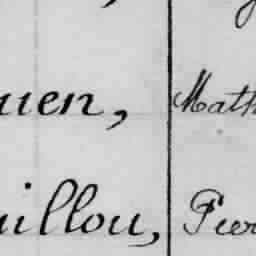 uen, Math
uillou, Pier